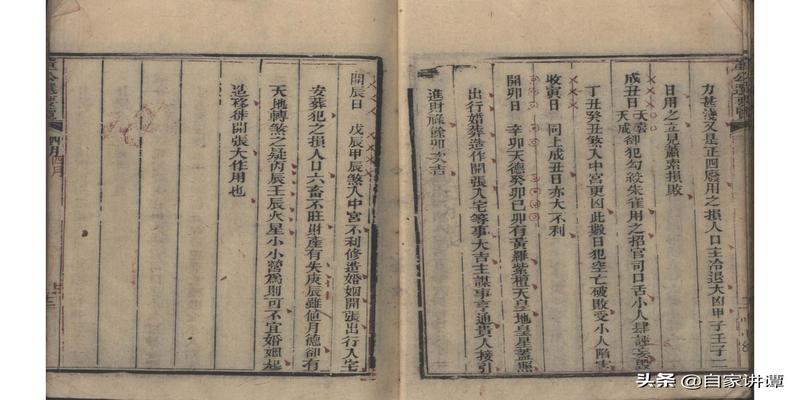 力甚淺又是正四廢用之損人口主冷退大凶甲子壬子二
日用之立見蕭索損敗
成丑日 天喜天成 卻犯勾絞朱雀用之招官司口舌小人肆誣妄
丁丑癸丑煞入中宮更凶此數日犯空亡破敗受小人陷害
收寅日 同上成丑日亦大不利
開卯日 辛卯天德癸卯己卯有黃羅紫檀天皇地皇星蓋照
出行婚葬造作開張入宅等事大吉主謀事亨通貴人接引
進財祿餘卯次吉
開辰日 戊辰甲辰煞入中宮不利修造婚姻開張出行入宅
安葬犯之損人口六畜不旺財產有失庚辰雖值月德卻有
天地轉煞之疑丙辰壬辰火星小小營為則可不宜婚姻起
造移徙開張大作用也
四月
頭条 @自家讲谭